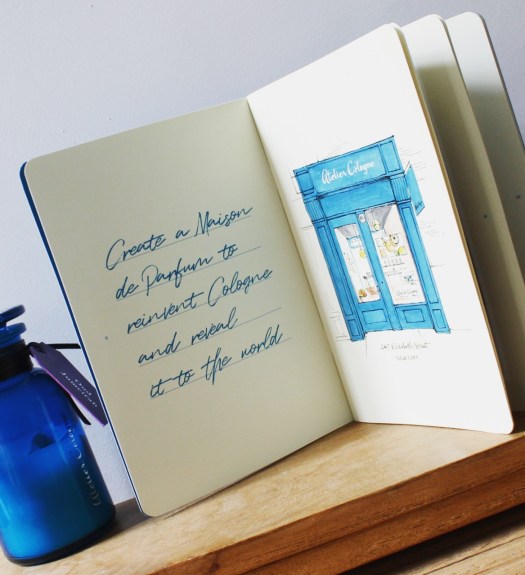 Create a Maison
de Parfum to
reinvent Cologne
and reveal
it to the world
Atelier Cologne
247 Elizabeth Street
Atelier